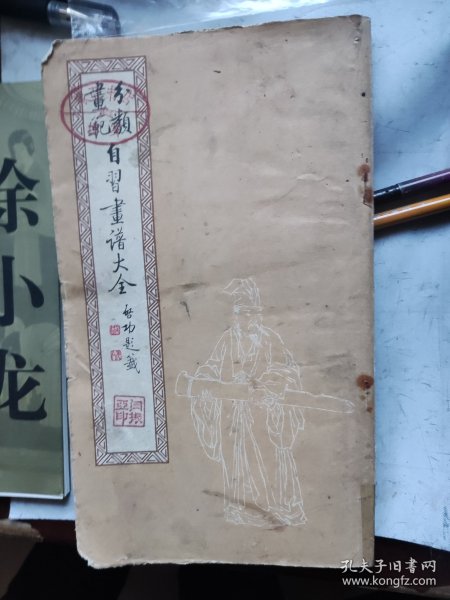 分類
畫範
自習畫譜大全
啓功題籤
徐小龙
孔夫子旧书网
www.kongfz.com